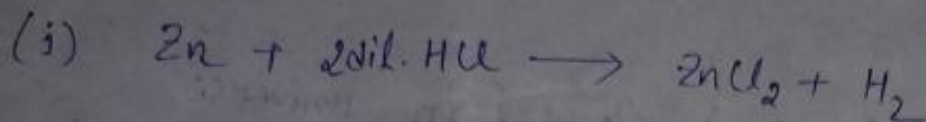 (i) Zn + 2dil. HCl → ZnCl₂ + H₂